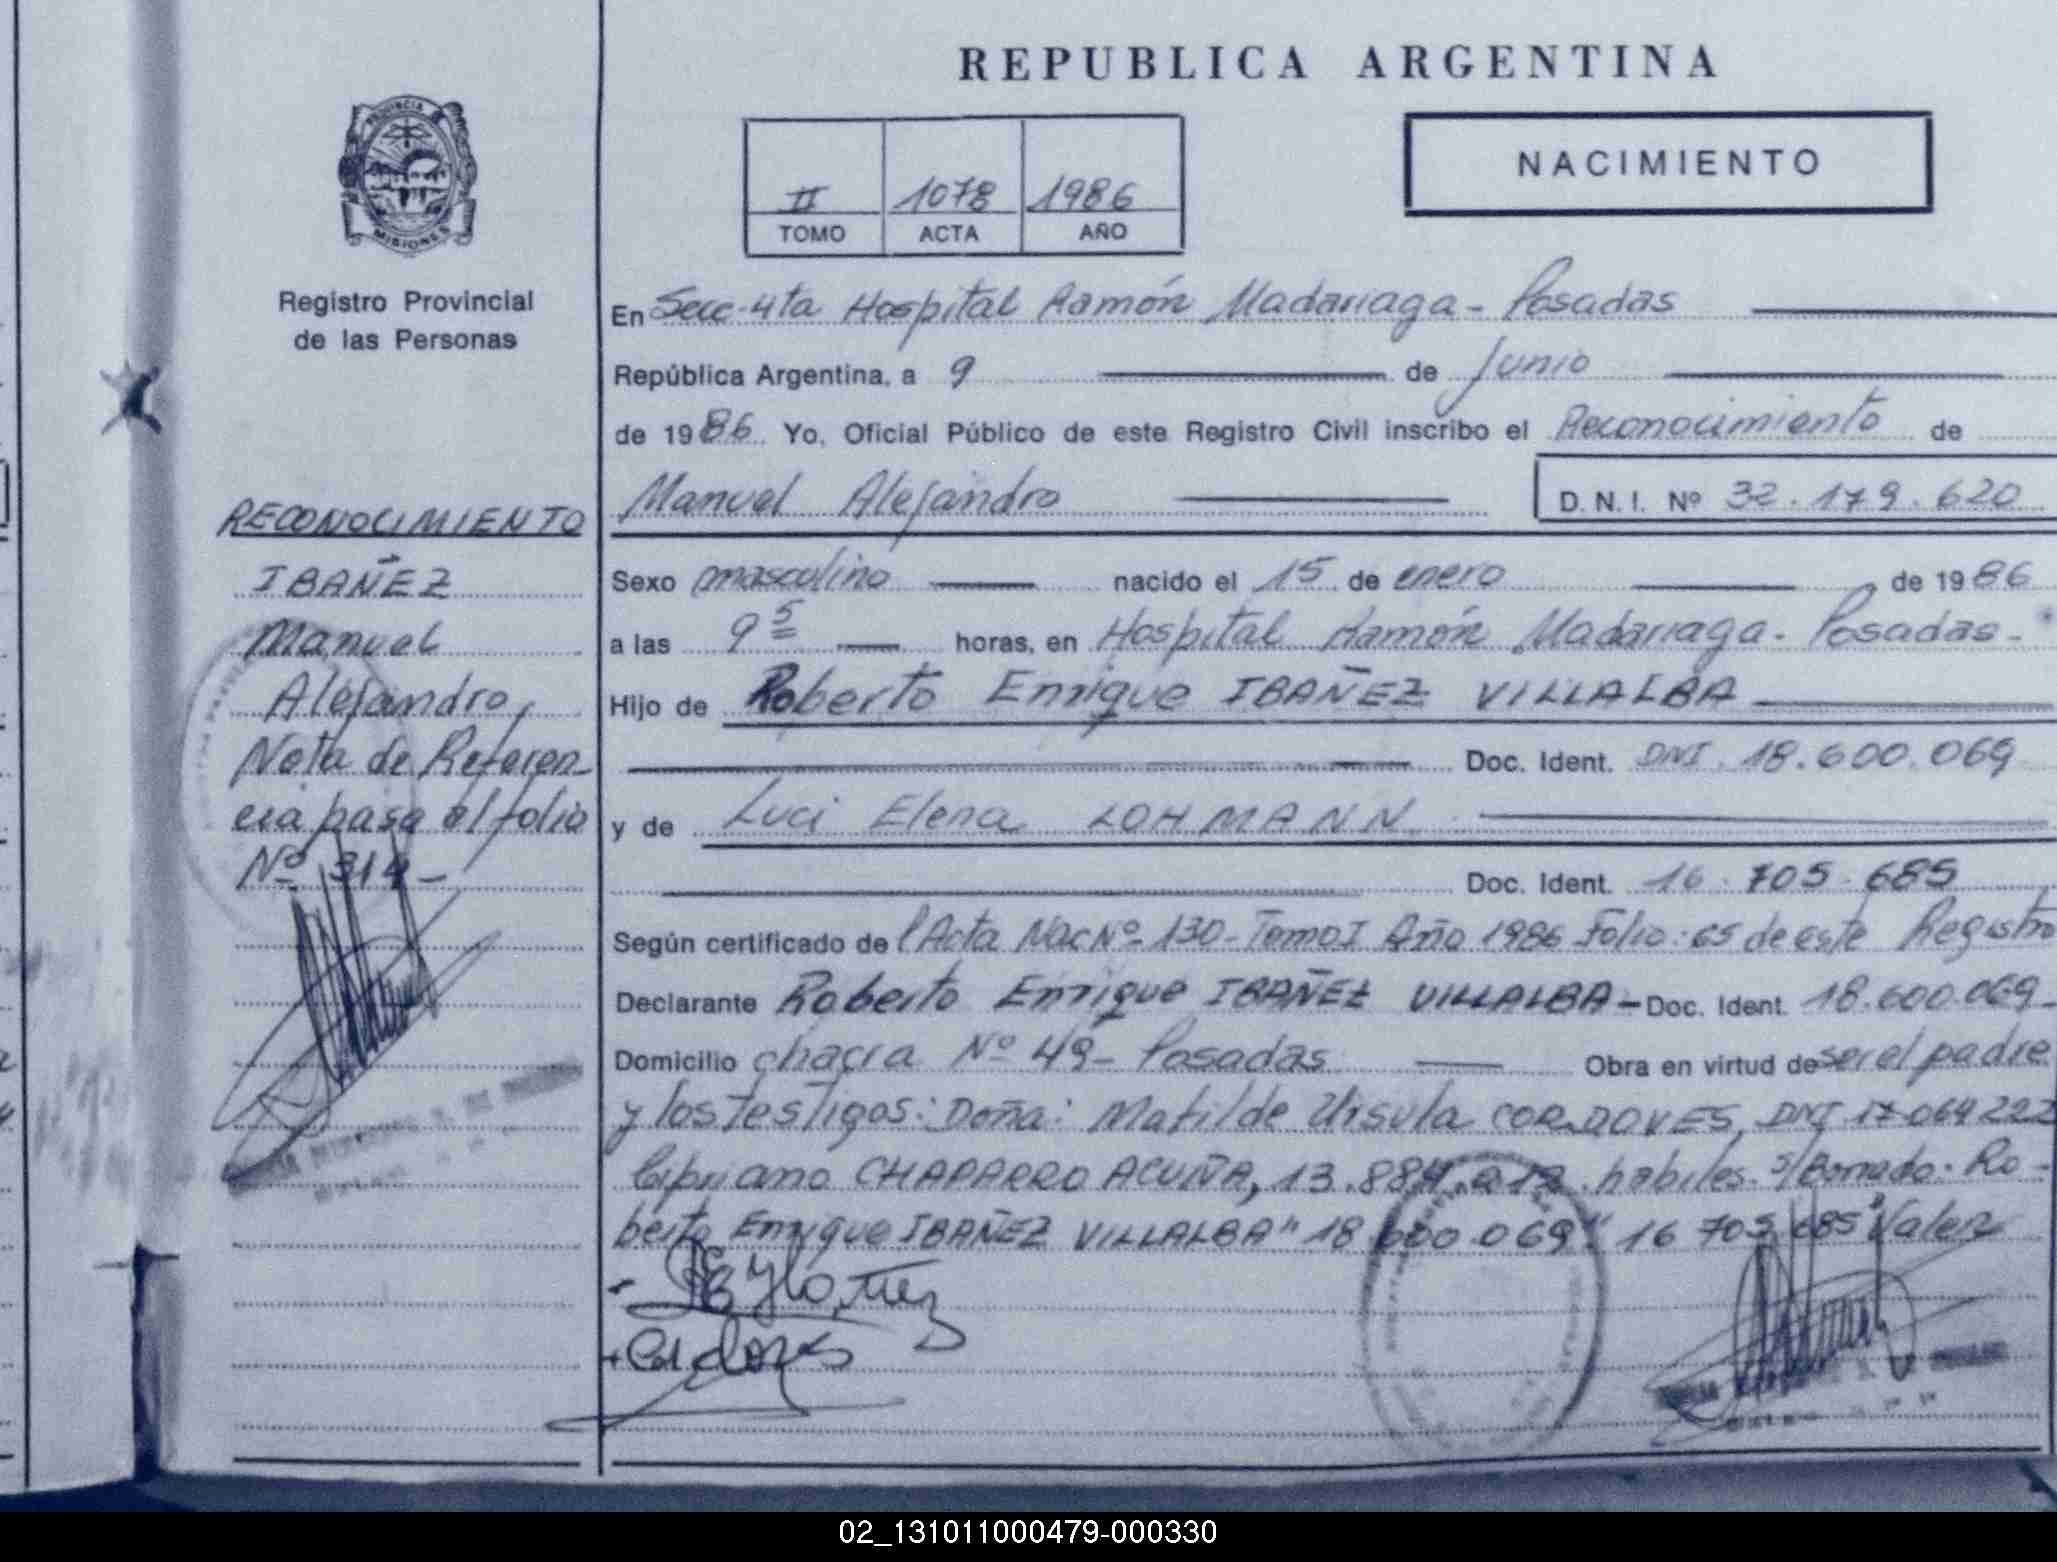 REPUBLICA ARGENTINA
PROVINCIA
MISIONES
Registro Provincial
de las Personas
II 1078 1986
TOMO ACTA AÑO
NACIMIENTO
En Secc. 4ta Hospital Ramón Madariaga - Posadas
República Argentina, a 9 de Junio
de 1986. Yo, Oficial Público de este Registro Civil inscribo el Reconocimiento de
Manuel Alejandro D.N.I. Nº 32.179.620
Sexo masculino nacido el 15 de enero de 1986
a las 9 5 horas, en Hospital Ramón Madariaga - Posadas -
Hijo de Roberto Enrique IBAÑEZ VILLALBA
Doc. Ident. DNI. 18.600.069
y de Luci Elena LOHMANN
Doc. Ident. 16.705.685
Según certificado de l'Acta Nac Nº 130 - Tomo I Año 1986 Folio: 65 de este Registro
Declarante Roberto Enrique IBAÑEZ VILLALBA - Doc. Ident. 18.600.069 -
Domicilio chacra Nº 49 - Posadas Obra en virtud de ser el padre
y los testigos: Doña: Matilde Ursula CORDOVES, DNI 17 064 222
Cipriano CHAPARRO ACUÑA, 13.884. habiles. s/Borrado: Ro-
berto Enrique IBAÑEZ VILLALBA" 18.600.069" 16 705 685 Valen
RECONOCIMIENTO
IBAÑEZ
Manuel
Alejandro
Nota de Referen
cia pasa al folio
Nº 314 -
02_131011000479-000330